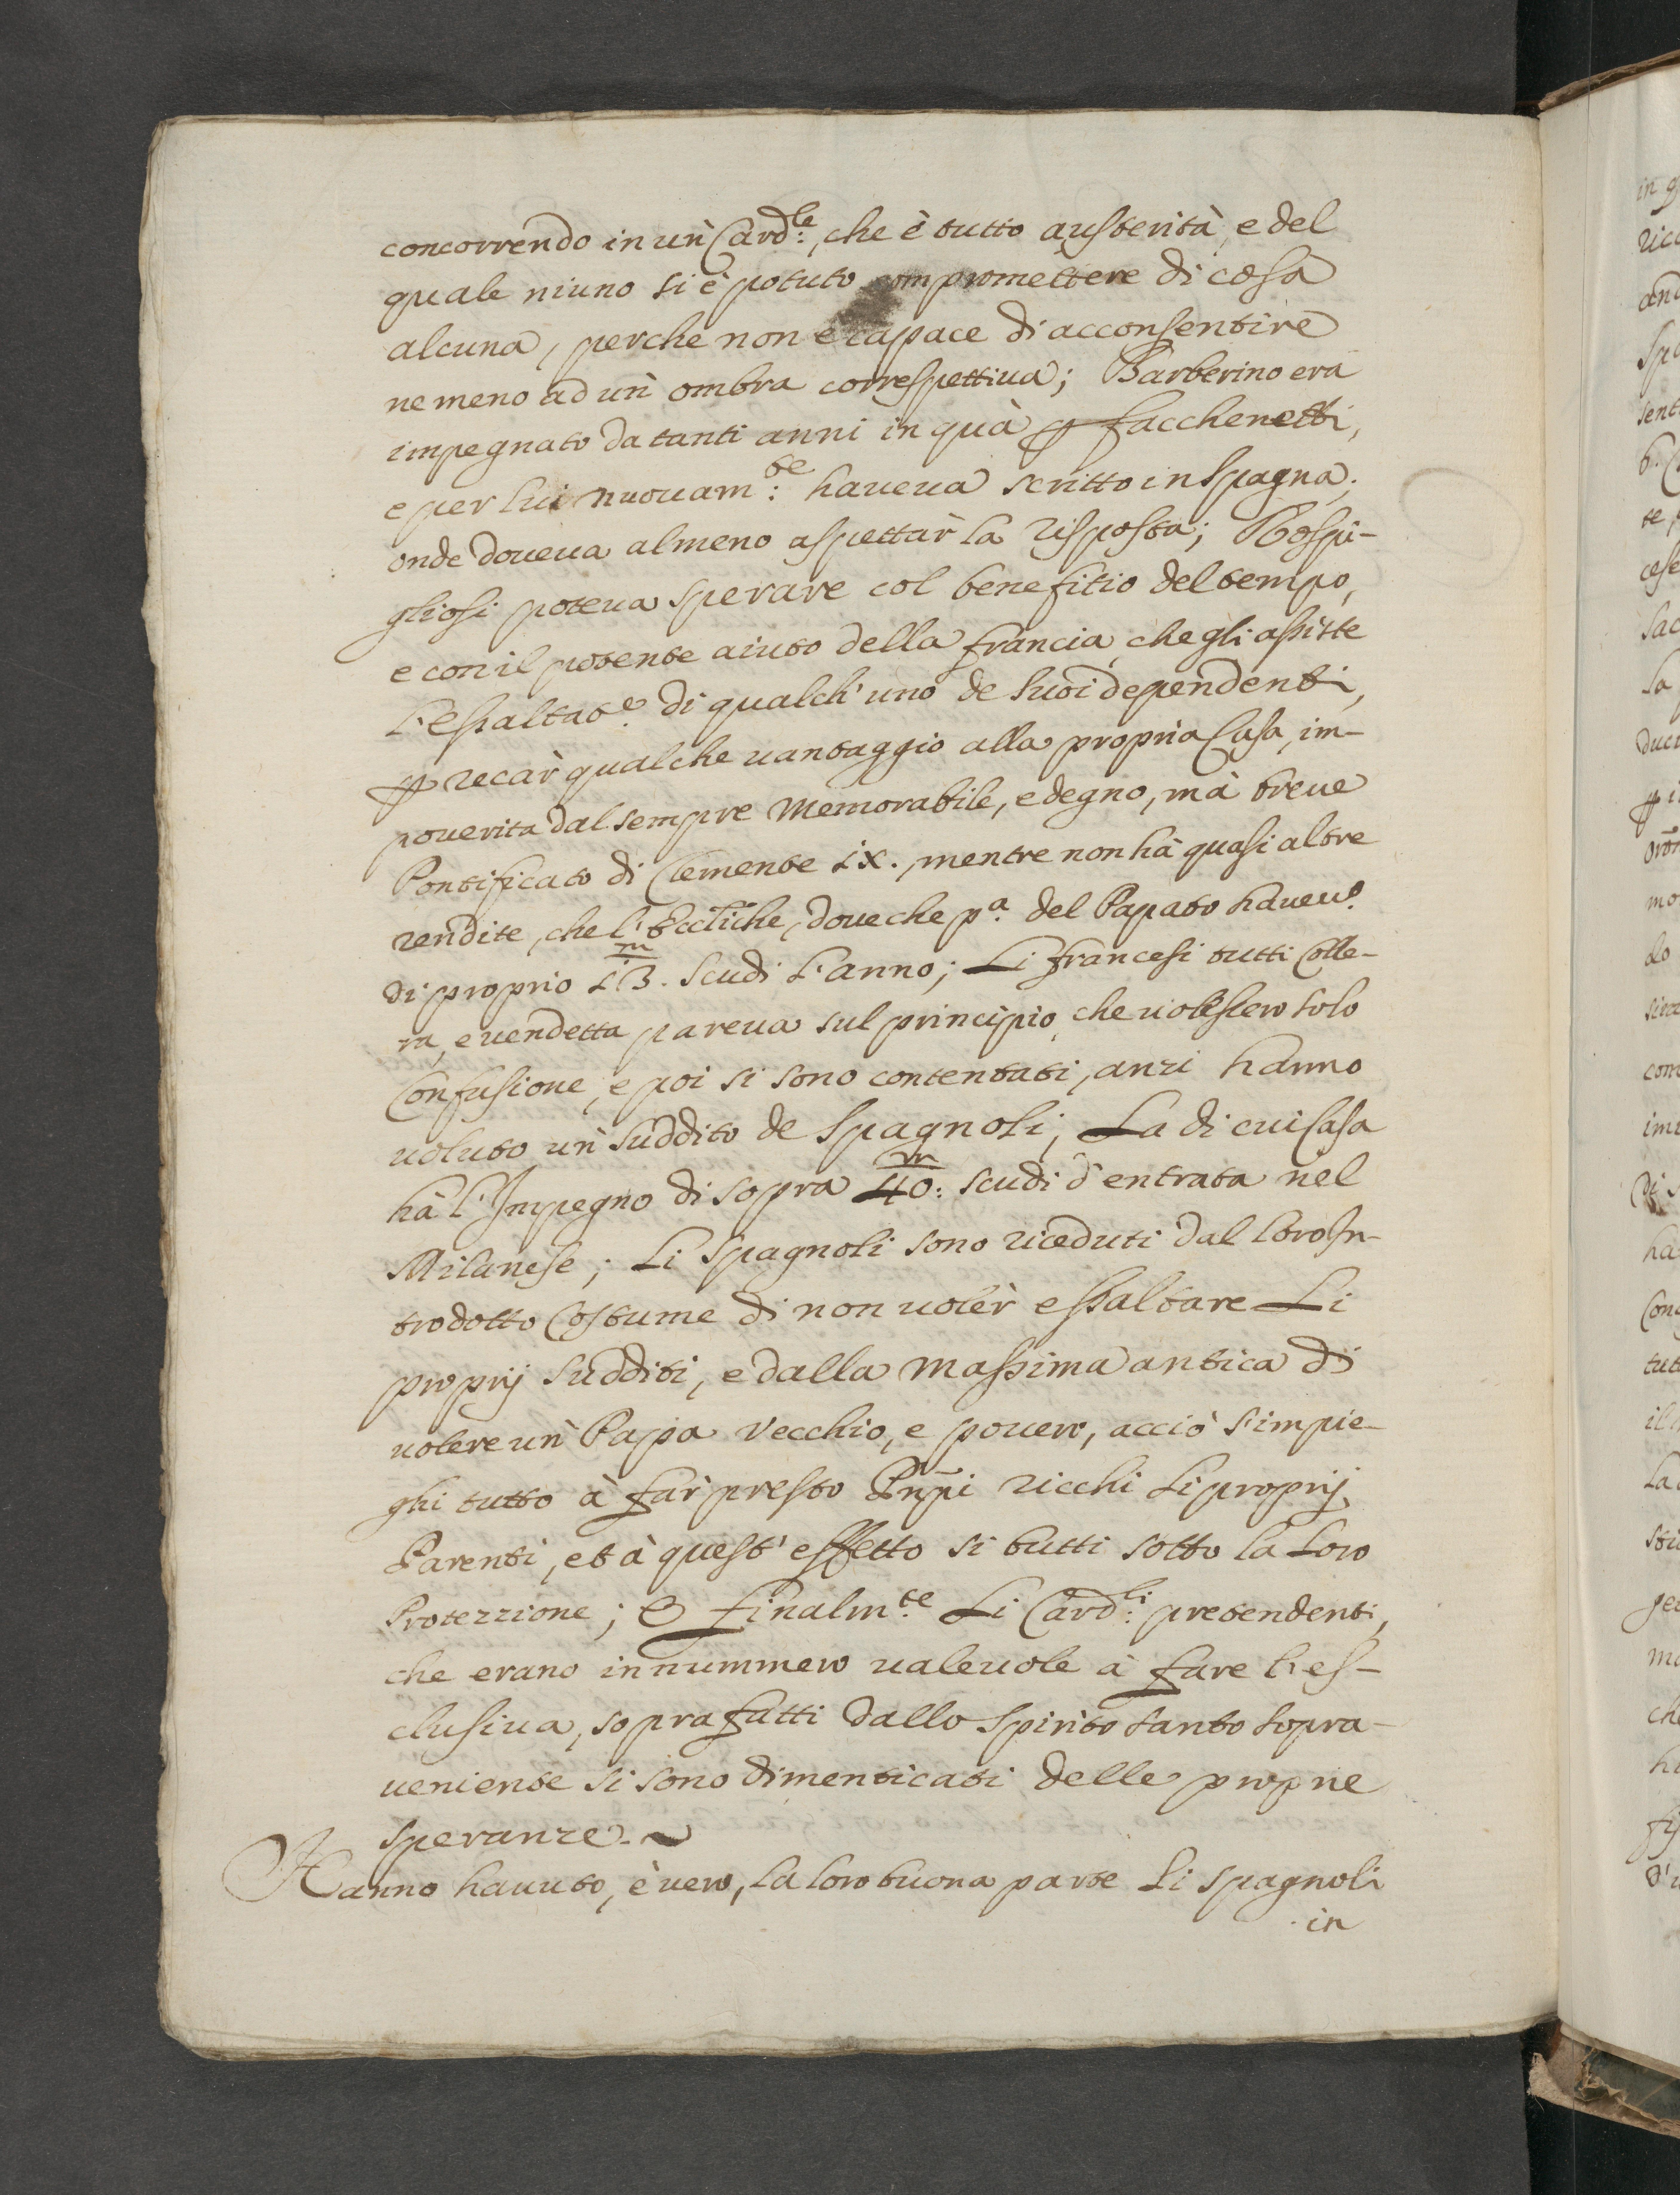 concorrendo in un' Card:le, che è tutto austerità, e del
quale niuno si è potuto compromettere di cosa
alcuna, perche non è capace di acconsentire
ne meno ad un' ombra correspettiua; Barberino era
impegnato da tanti anni in quà p facchenetti,
e per lui nuouam:te haueua scritto in Spagna,
onde doueua almeno aspettar la risposta; Rospi-
gliosi poteua sperare col benefitio del tempo,
e con il potente aiuto della francia, che gli assiste
l'essaltat.e di qualch'uno de suoi dependenti,
p recar qualche uantaggio alla propria Casa, im-
pouerita dal sempre memorabile, e degno, mà breue
Pontificato di Clemente IX., mentre non hà quasi altre
rendite, che l'Eccl̃iche, doue che p.a del Papato haueu.o
di proprio 13.m scudi l'anno; Li francesi tutti Colle-
ra, e uendetta pareua sul principio, che uolessero solo
Confusione, e poi si sono contentati, anzi hanno
uoluto un' suddito de Spagnoli, La di cui Casa
hà l'Impegno di sopra 40:m scudi d'entrata nel
Milanese; Li Spagnoli sono riceduti dal loro In-
trodotto Costume di non uoler essaltare Li
proprij sudditi, e dalla massima antica di
uolere un' Papa Vecchio, e pouero, acciò s'impie-
ghi tutto à far presto Prñpi ricchi li proprij
Parenti, et à quest' effetto si butti sotto la Loro
Protezzione; E finalm:te Li Card:li pretendenti,
che erano in nummero ualeuole à fare l'es-
clusiua, soprafatti dallo Spirito santo sopra-
ueniente si sono dimenticati delle proprie
speranze.~
Hanno hauuto, è uero, la loro buona parte Li Spagnoli
in